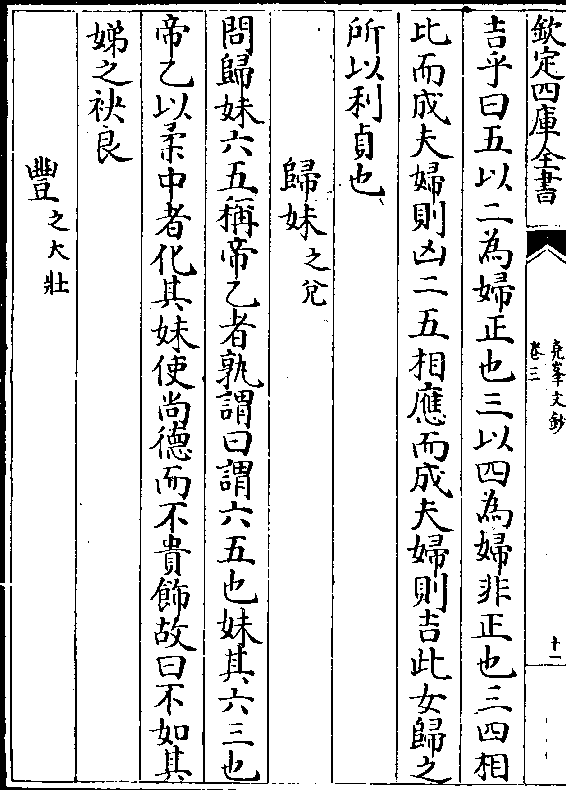 欽定四庫全書
堯峯文鈔
卷三
十一
吉乎曰五以二為婦正也三以四為婦非正也三四相
比而成夫婦則凶二五相應而成夫婦則吉此女歸之
所以利貞也
歸妹之兌
問歸妹六五稱帝乙者孰謂曰謂六五也妹其六三也
帝乙以柔中者化其妹使尚德而不貴飾故曰不如其
娣之袂良
豐之大壯